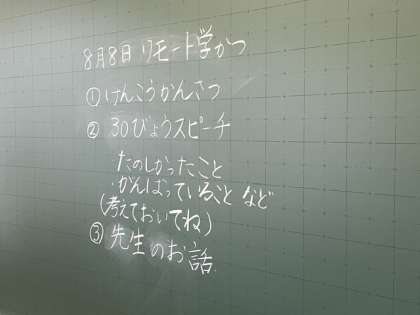 8月8日 リモート学かつ
①けんこうかんさつ
②30びょうスピーチ
たのしかったこと
がんばっていること など
(考えておいてね)
③先生のお話